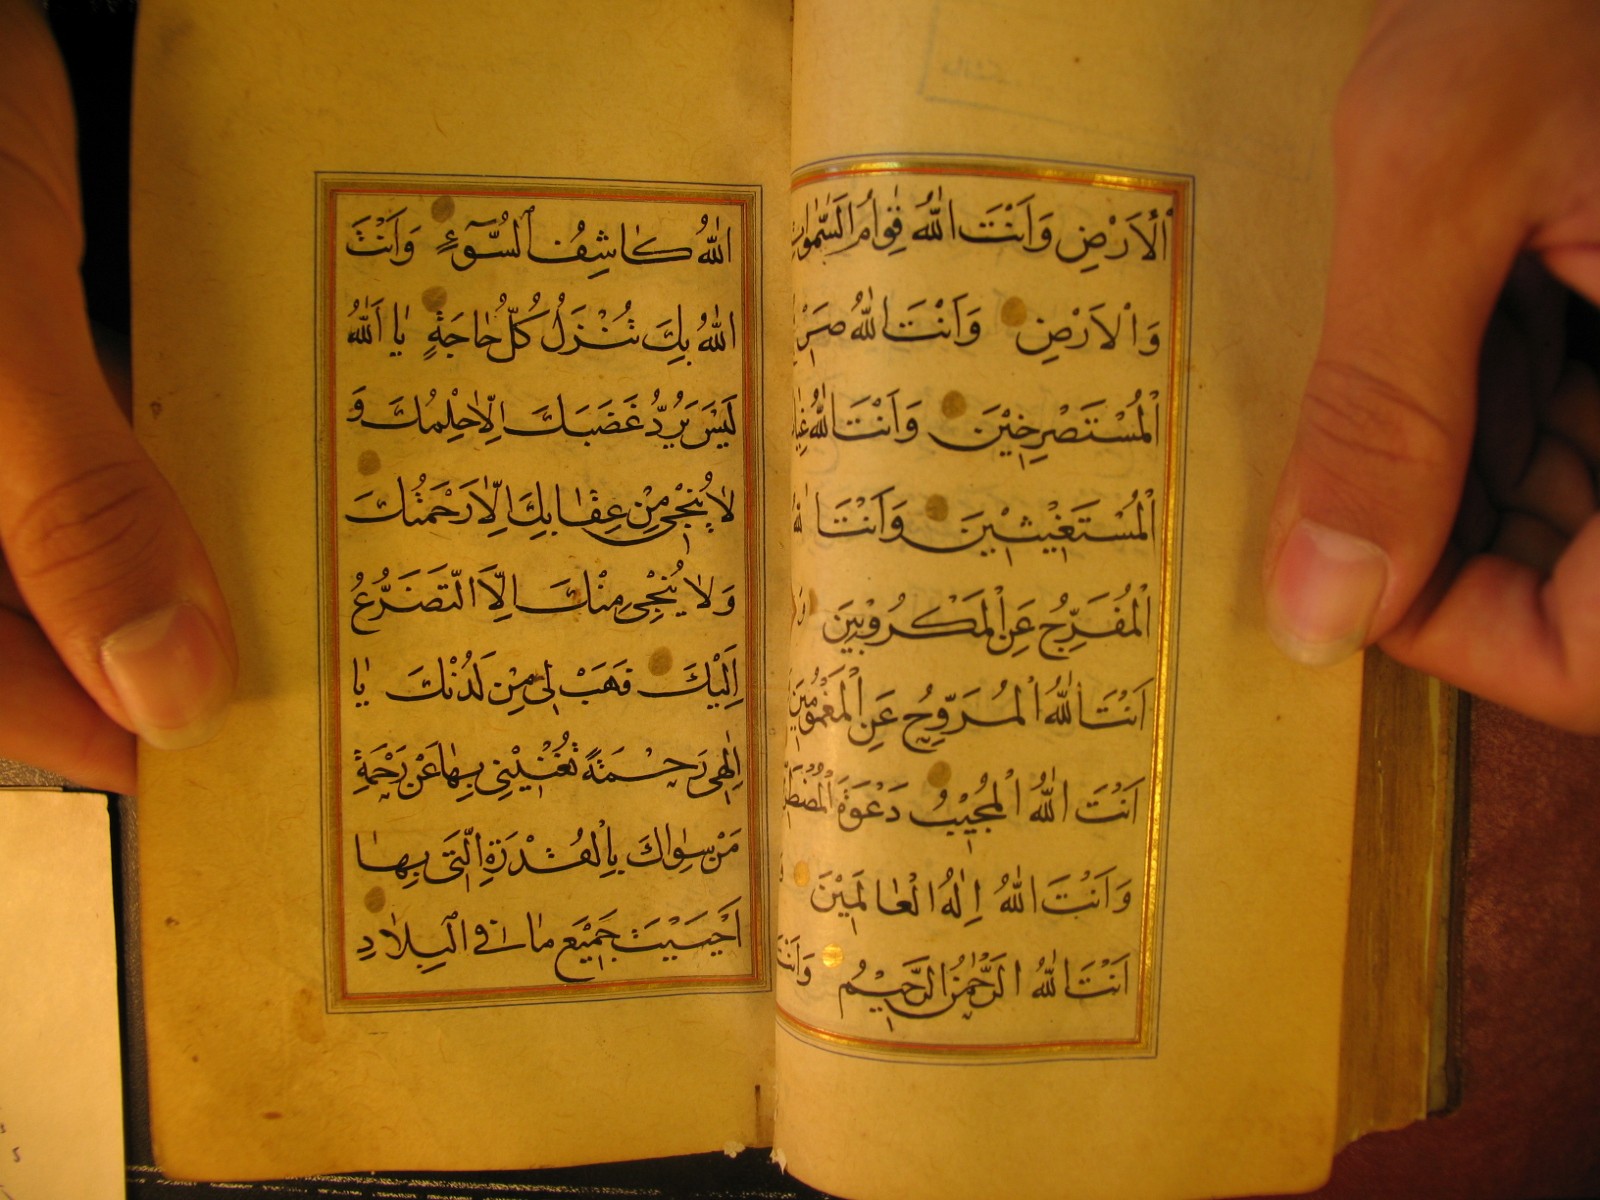 اَلْاَرْضِ وَاَنْتَ اللّٰهُ قِوَامُ السَّمٰوَاتِ
وَالْاَرْضِ وَاَنْتَ اللّٰهُ
الْمُسْتَصْرِخِيْنَ وَاَنْتَ اللّٰهُ
الْمُسْتَغِيْثِيْنَ وَاَنْتَ اللّٰهُ
الْمُفَرِّجُ عَنِ الْمَكْرُوْبِيْنَ
اَنْتَ اللّٰهُ الْمُرَوِّحُ عَنِ الْمَغْمُوْمِيْنَ
اَنْتَ اللّٰهُ الْمُجِيْبُ دَعْوَةَ
وَاَنْتَ اللّٰهُ اِلٰهُ الْعَالَمِيْنَ
اَنْتَ اللّٰهُ الرَّحْمٰنُ الرَّحِيْمُ وَاَنْتَ
اللّٰهُ كَاشِفُ السُّوْٓءِ وَاَنْتَ
اللّٰهُ بِكَ تُنْزَلُ كُلُّ حَاجَةٍ يَا اَللّٰهُ
لَيْسَ يَرُدُّ غَضَبَكَ اِلَّا حِلْمُكَ وَ
لَا يُنْجِيْ مِنْ عِقَابِكَ اِلَّا رَحْمَتُكَ
وَلَا يُنْجِيْ مِنْكَ اِلَّا التَّضَرُّعُ
اِلَيْكَ فَهَبْ لِيْ مِنْ لَدُنْكَ يَا
اِلٰهِيْ رَحْمَةً تُغْنِيْنِيْ بِهَا عَنْ رَحْمَةِ
مَنْ سِوَاكَ بِالْقُدْرَةِ الَّتِيْ بِهَا
اَحْيَيْتَ جَمِيْعَ مَا فِي الْبِلَادِ